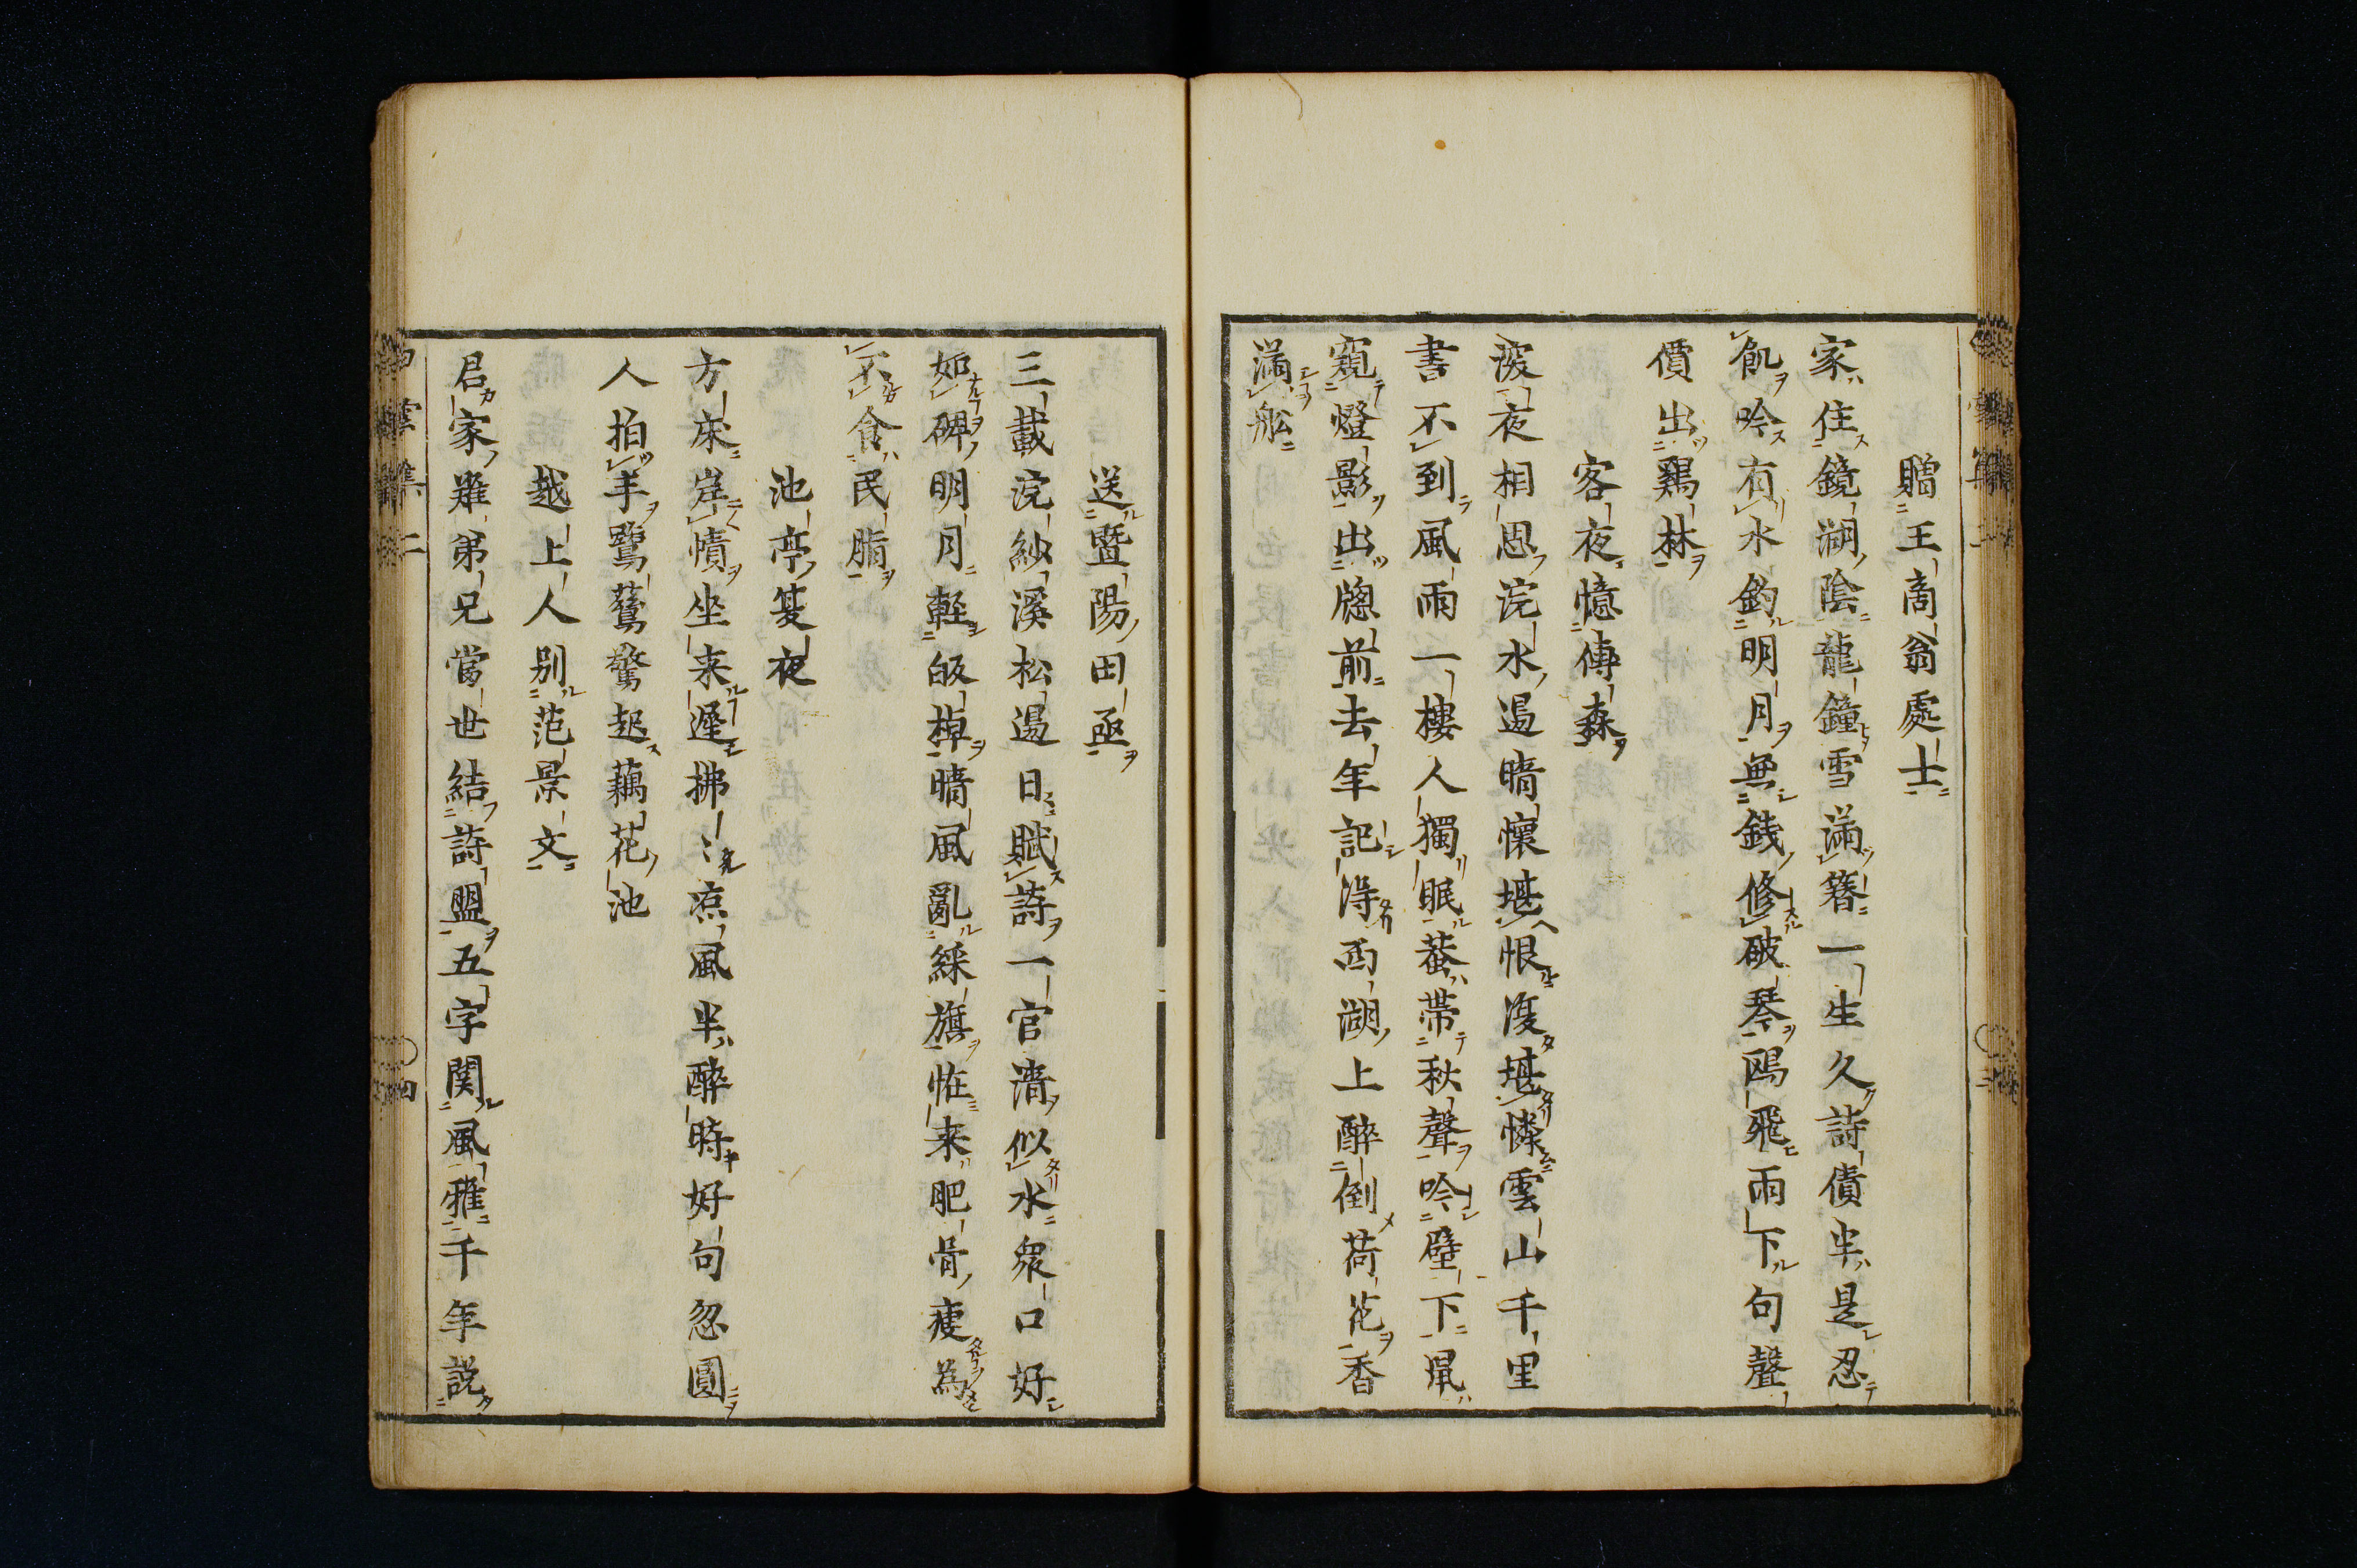 贈王商翁處士
家住鏡湖陰龍鐘雪滿簪一生久詩債半是忍
飢吟有水釣明月無錢修破琴鴎飛雨下句聲
價出鷄林
客夜憶傅森
後夜相思浣水邊晴懷堪恨復堪憐雲山千里
書不到風雨一樓人獨眠蛩帯秋聲吟壁下鼠
窺燈影出牕前去年記得西湖上醉倒荷花香
滿舩
送暨陽田丞
三載浣紗溪松邊日賦詩一官清似水衆口好
如碑明月輕皈棹晴風亂綵旗怪来肥骨瘦為
不食民脂
池亭夏夜
方床岸幘坐来遲拂〻凉風半醉時好句忽圓
人拍手鷺鷥驚起藕花池
越上人别范景文
君家難弟兄當世結詩盟五字関風雅千年説
白雲集二 四